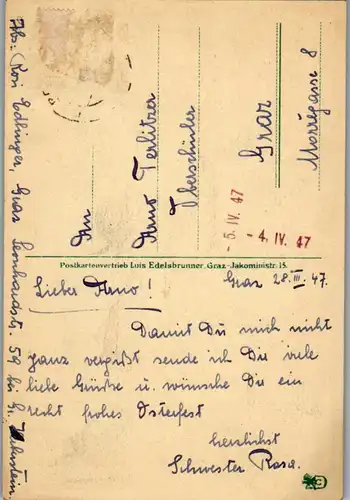 Abs: Rosi Edlinger, Graz Leonhardstr. 59 bei
An
Arno Terlitzer
Oberschüler
Graz
Morrégasse 8
- 5. IV. 47
- 4. IV. 47
Postkartenvertrieb Luis Edelsbrunner, Graz-Jakoministr. 15.
Graz 28. III. 47.
Lieber Arno!
Damit Du mich nicht
ganz vergißt sende ich Dir viele
liebe Grüße u. wünsche Dir ein
recht frohes Osterfest
herzlichst
Schwester Rosa.